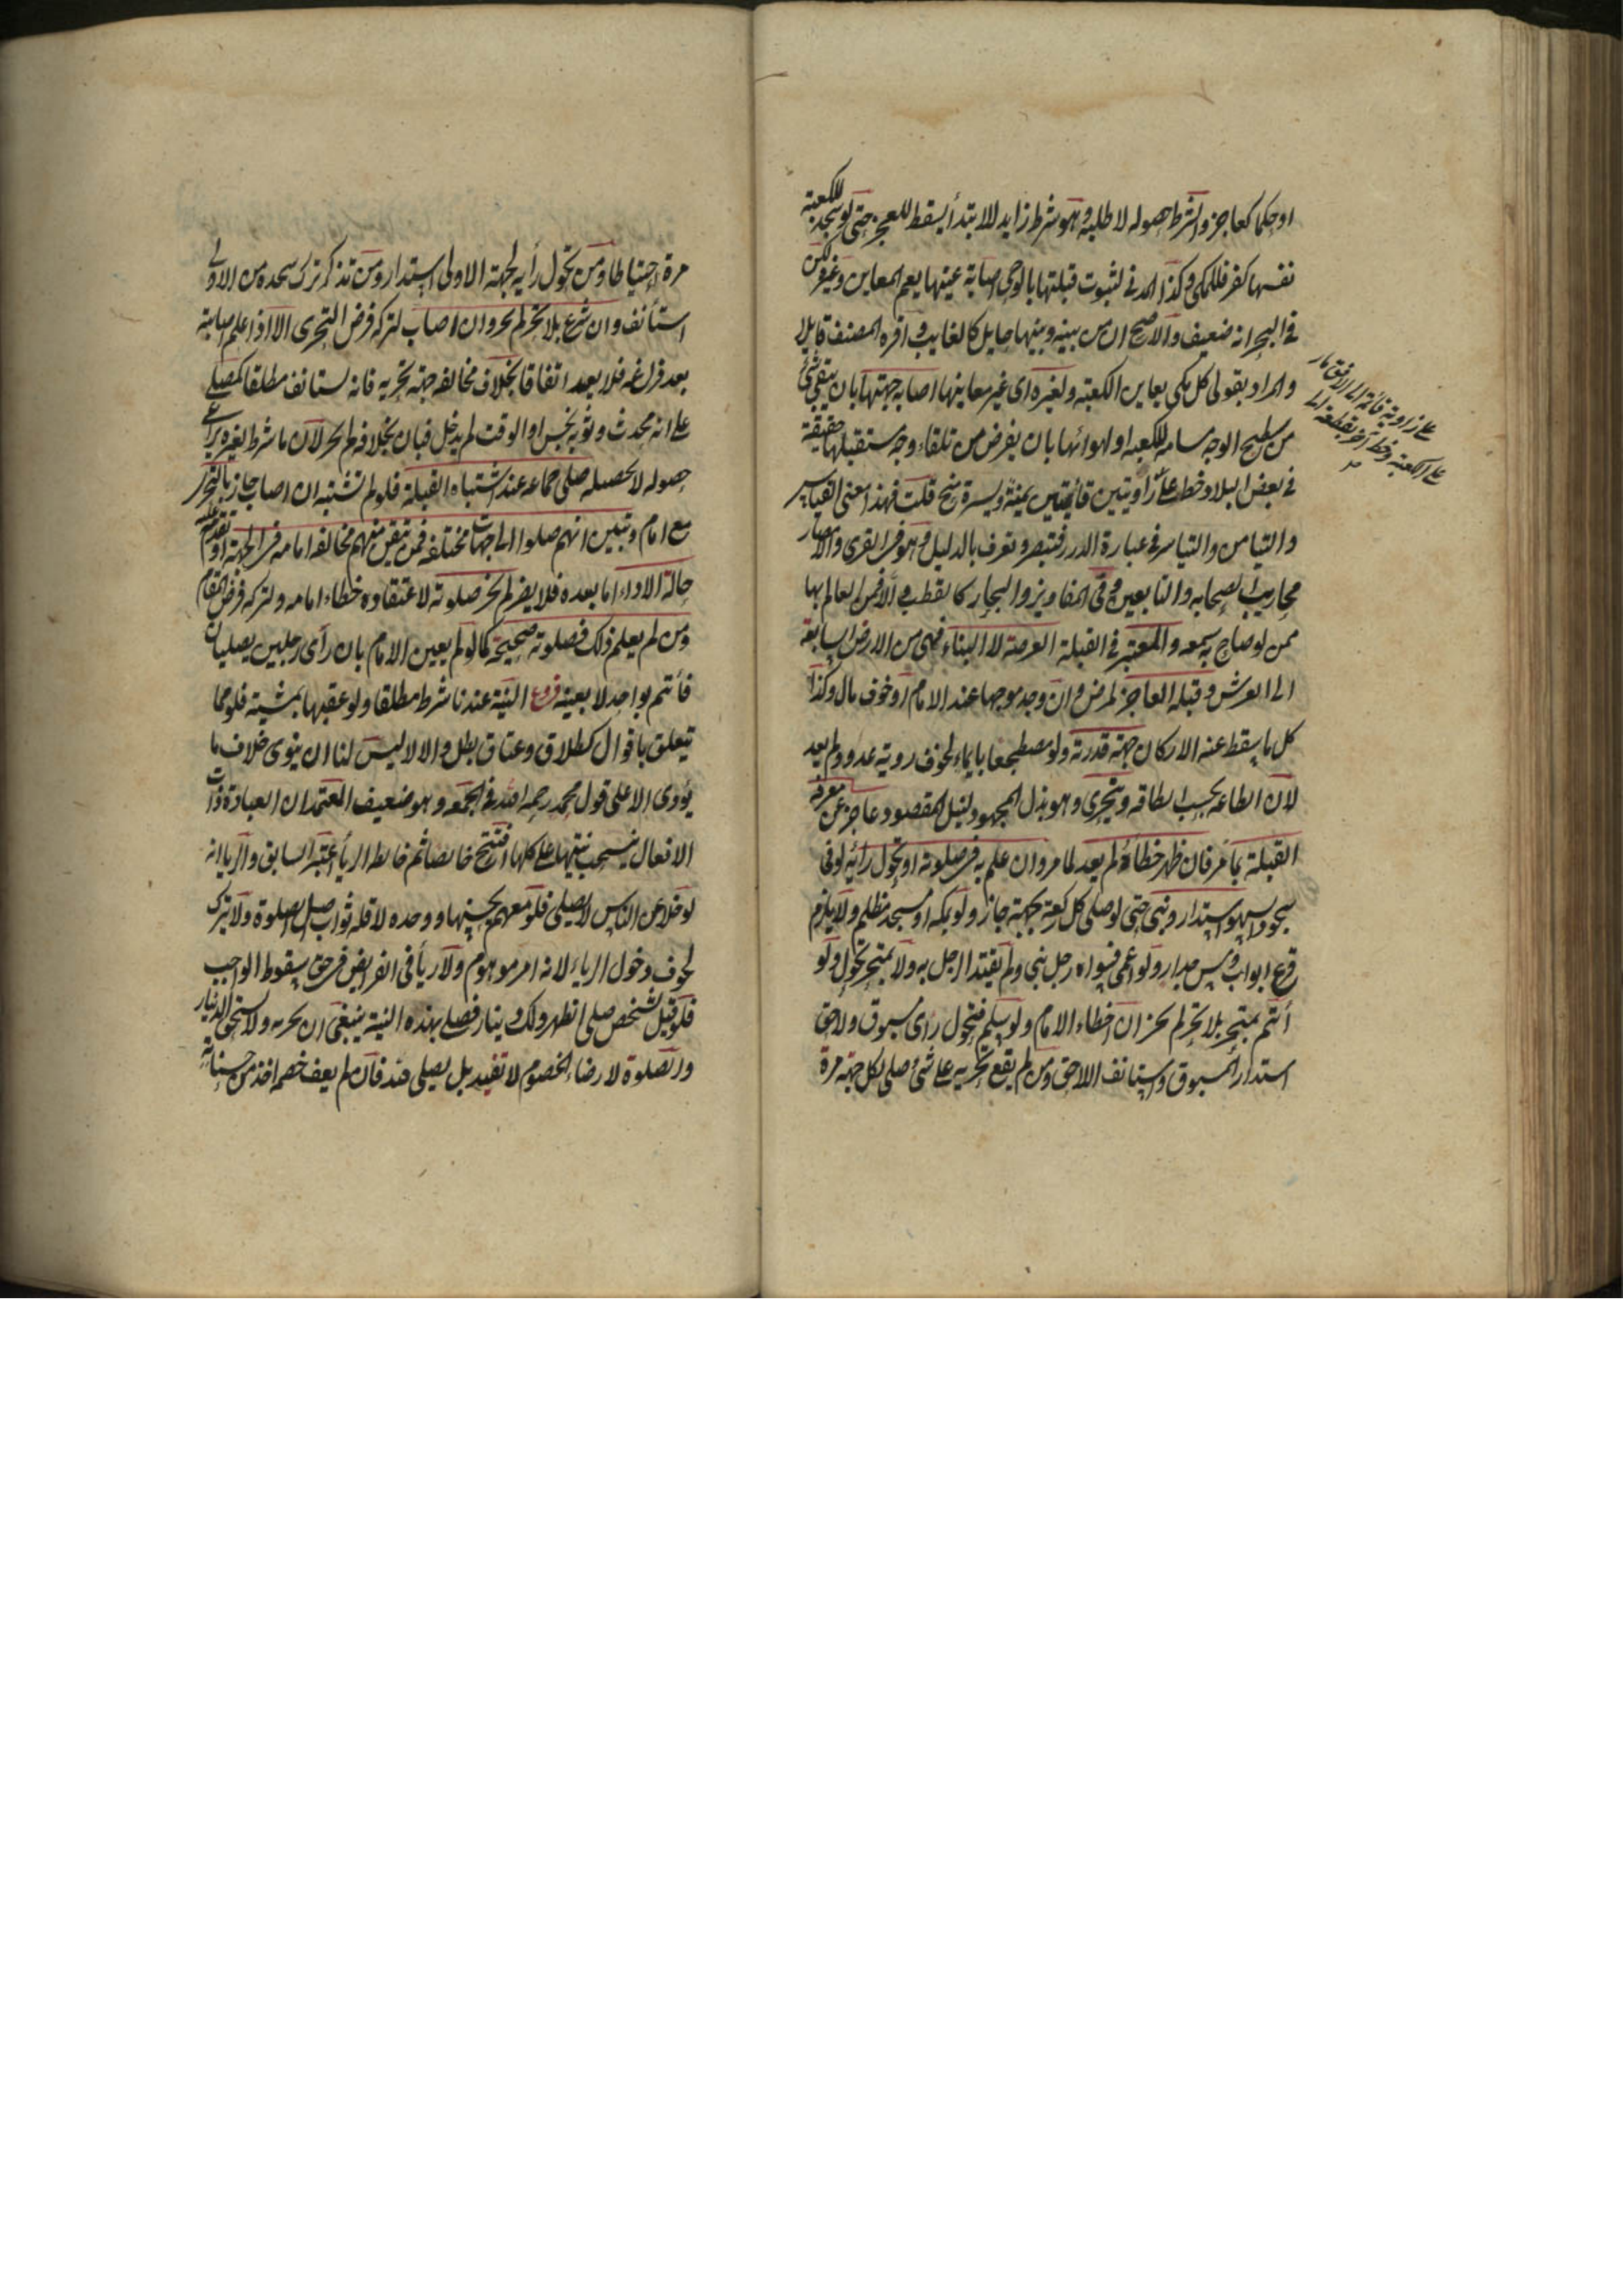 او حكما كعاجز والشرط حصوله لا طلبه وهو شرط زايد للابتداء يسقط للعجز حتى لو سجد للكعبة
نفسها كفر فللمكي وكذا المدني لثبوت قبلتها بالوحي اصابة عينها يعم المعاين وغيره لكن
في البحر انه ضعيف والاصح ان من بينه وبينها حايل كالغايب واقره المصنف قايلا
والمراد بقولي كل مكي يعاين الكعبة ولغيره اى غير معاينها اصابة جهتها بان يبقى شئ
من سطح الوجه مسامتا للكعبة او لهوائها بان يفرض من تلقاء وجه مستقبلها حقيقة
في بعض البلاد خط على زاويتين قائمتين يمنة ويسرة منح قلت فهذا معنى التياسر
والتيامن في عبارة الدرر فتبصر وتعرف بالدليل وهو في القرى والامصار
محاريب الصحابه والتابعين وفى المفاويز والبحار كالقطب والا فمن العالم بها
ممن لو صاح به سمعه والمعتبر في القبلة العرصة لا البناء فهى من الارض السابعة
الى العرش وقبلة العاجز لمرض وان وجد موجها عند الامام او خوف مال وكذا
كل ما سقط عنه الاركان جهة قدرته ولو مضطجعا بايماء لخوف روية عدو ولم يعد
لان الطاعة بحسب الطاقة ويتحرى وهو بذل المجهود لنيل المقصود عاجز عن معرفة
القبلة بما مر فان ظهر خطاؤه لم يعد لما مر وان علم به في صلوته او تحول رأيه لو في
سجود سهو استدار وبنى حتى لو صلى كل ركعة بجهة جاز ولو بمكة او مسجد مظلم ولا يلزم
قرع ابواب ومس جدار ولو اعمى فسواه رجل بنى ولم يقتد الرجل به ولا بمتحر تحول ولو
أتم بمتحر بلا تحر لم يجز ان اخطاء الامام ولو سلم فتحول راى مسبوق ولاحق
استدار المسبوق واستانف اللاحق ومن لم يقع تحريه على شئ صلى لكل جهة مرة
على زاوية قائمة الى الافق مار
على الكعبة وخط آخر يقطعه
مرة احتياطا ومن تحول رأيه لجهته الاولى استدار ومن تذكر ترك سجدة من الاولى
استأنف وان شرع بلا تحر لم يجز وان اصاب لتركه فرض التحرى الا اذا علم اصابته
بعد فراغه فلا يعيد اتفاقا بخلاف مخالفه جهة تحريه فانه يستانف مطلقا كمصلى
على انه محدث او ثوبه نجس او الوقت لم يدخل فبان بخلافه لم يجز لان ما شرط لغيره يراعى
حصوله لا تحصيله صلى جماعة عند اشتباه القبلة فلو لم تشتبه ان اصاب جاز بالتحر
مع امام وتبين انهم صلوا الى جهات مختلفه فمن تيقن منهم مخالفه امامه في الجهة او تقدم عليه
حالة الاداء اما بعده فلا يضر لم تجز صلوته لاعتقاده خطاء امامه ولتركه فرض المقام
ومن لم يعلم ذلك فصلوته صحيحة كما لو لم يعين الامام بان رأى رجلين يصليان
فأتم بواحد لا بعينه فروع النية عندنا شرط مطلقا ولو عقبها بمشية فلو مما
تيعلق باقوال كطلاق وعتاق بطل والا لا ليس لنا ان ينوى خلاف ما
يؤدى الا على قول محمد رحمه الله في الجمعه وهو ضعيف المعتمد ان العبادة ذات
الافعال ينسحب نيتها على كلها افتتح خالصا ثم خالطه الريأ اعتبر السابق والريا انه
لو خلا عن الناس لا يصلى فلو معهم يحسنها ووحده لا فله ثواب اصل الصلوة ولا يترك
لخوف دخول الرياء لانه امر موهوم ولا ريأ في الفرايض في حق سقوط الواجب
فلو قيل لشخص صلى الظهر ولك دينار فصلى بهذه النية ينبغى ان يجزيه ولا يستحق الدينار
والصلوة لارضاء الخصوم لا تفيد بل يصلى لله فان لم يعف خصمه اخذ من حسناته